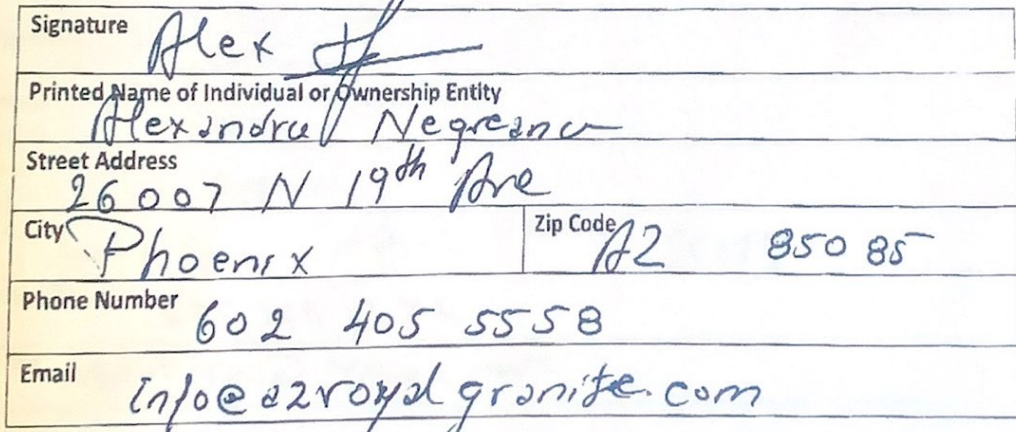 Signature Alex
Printed Name of Individual or Ownership Entity
Alexandru Negreanu
Street Address
26007 N 19th Ave
City Phoenix Zip Code AZ 85085
Phone Number
602 405 5558
Email
info@azroyalgranite.com